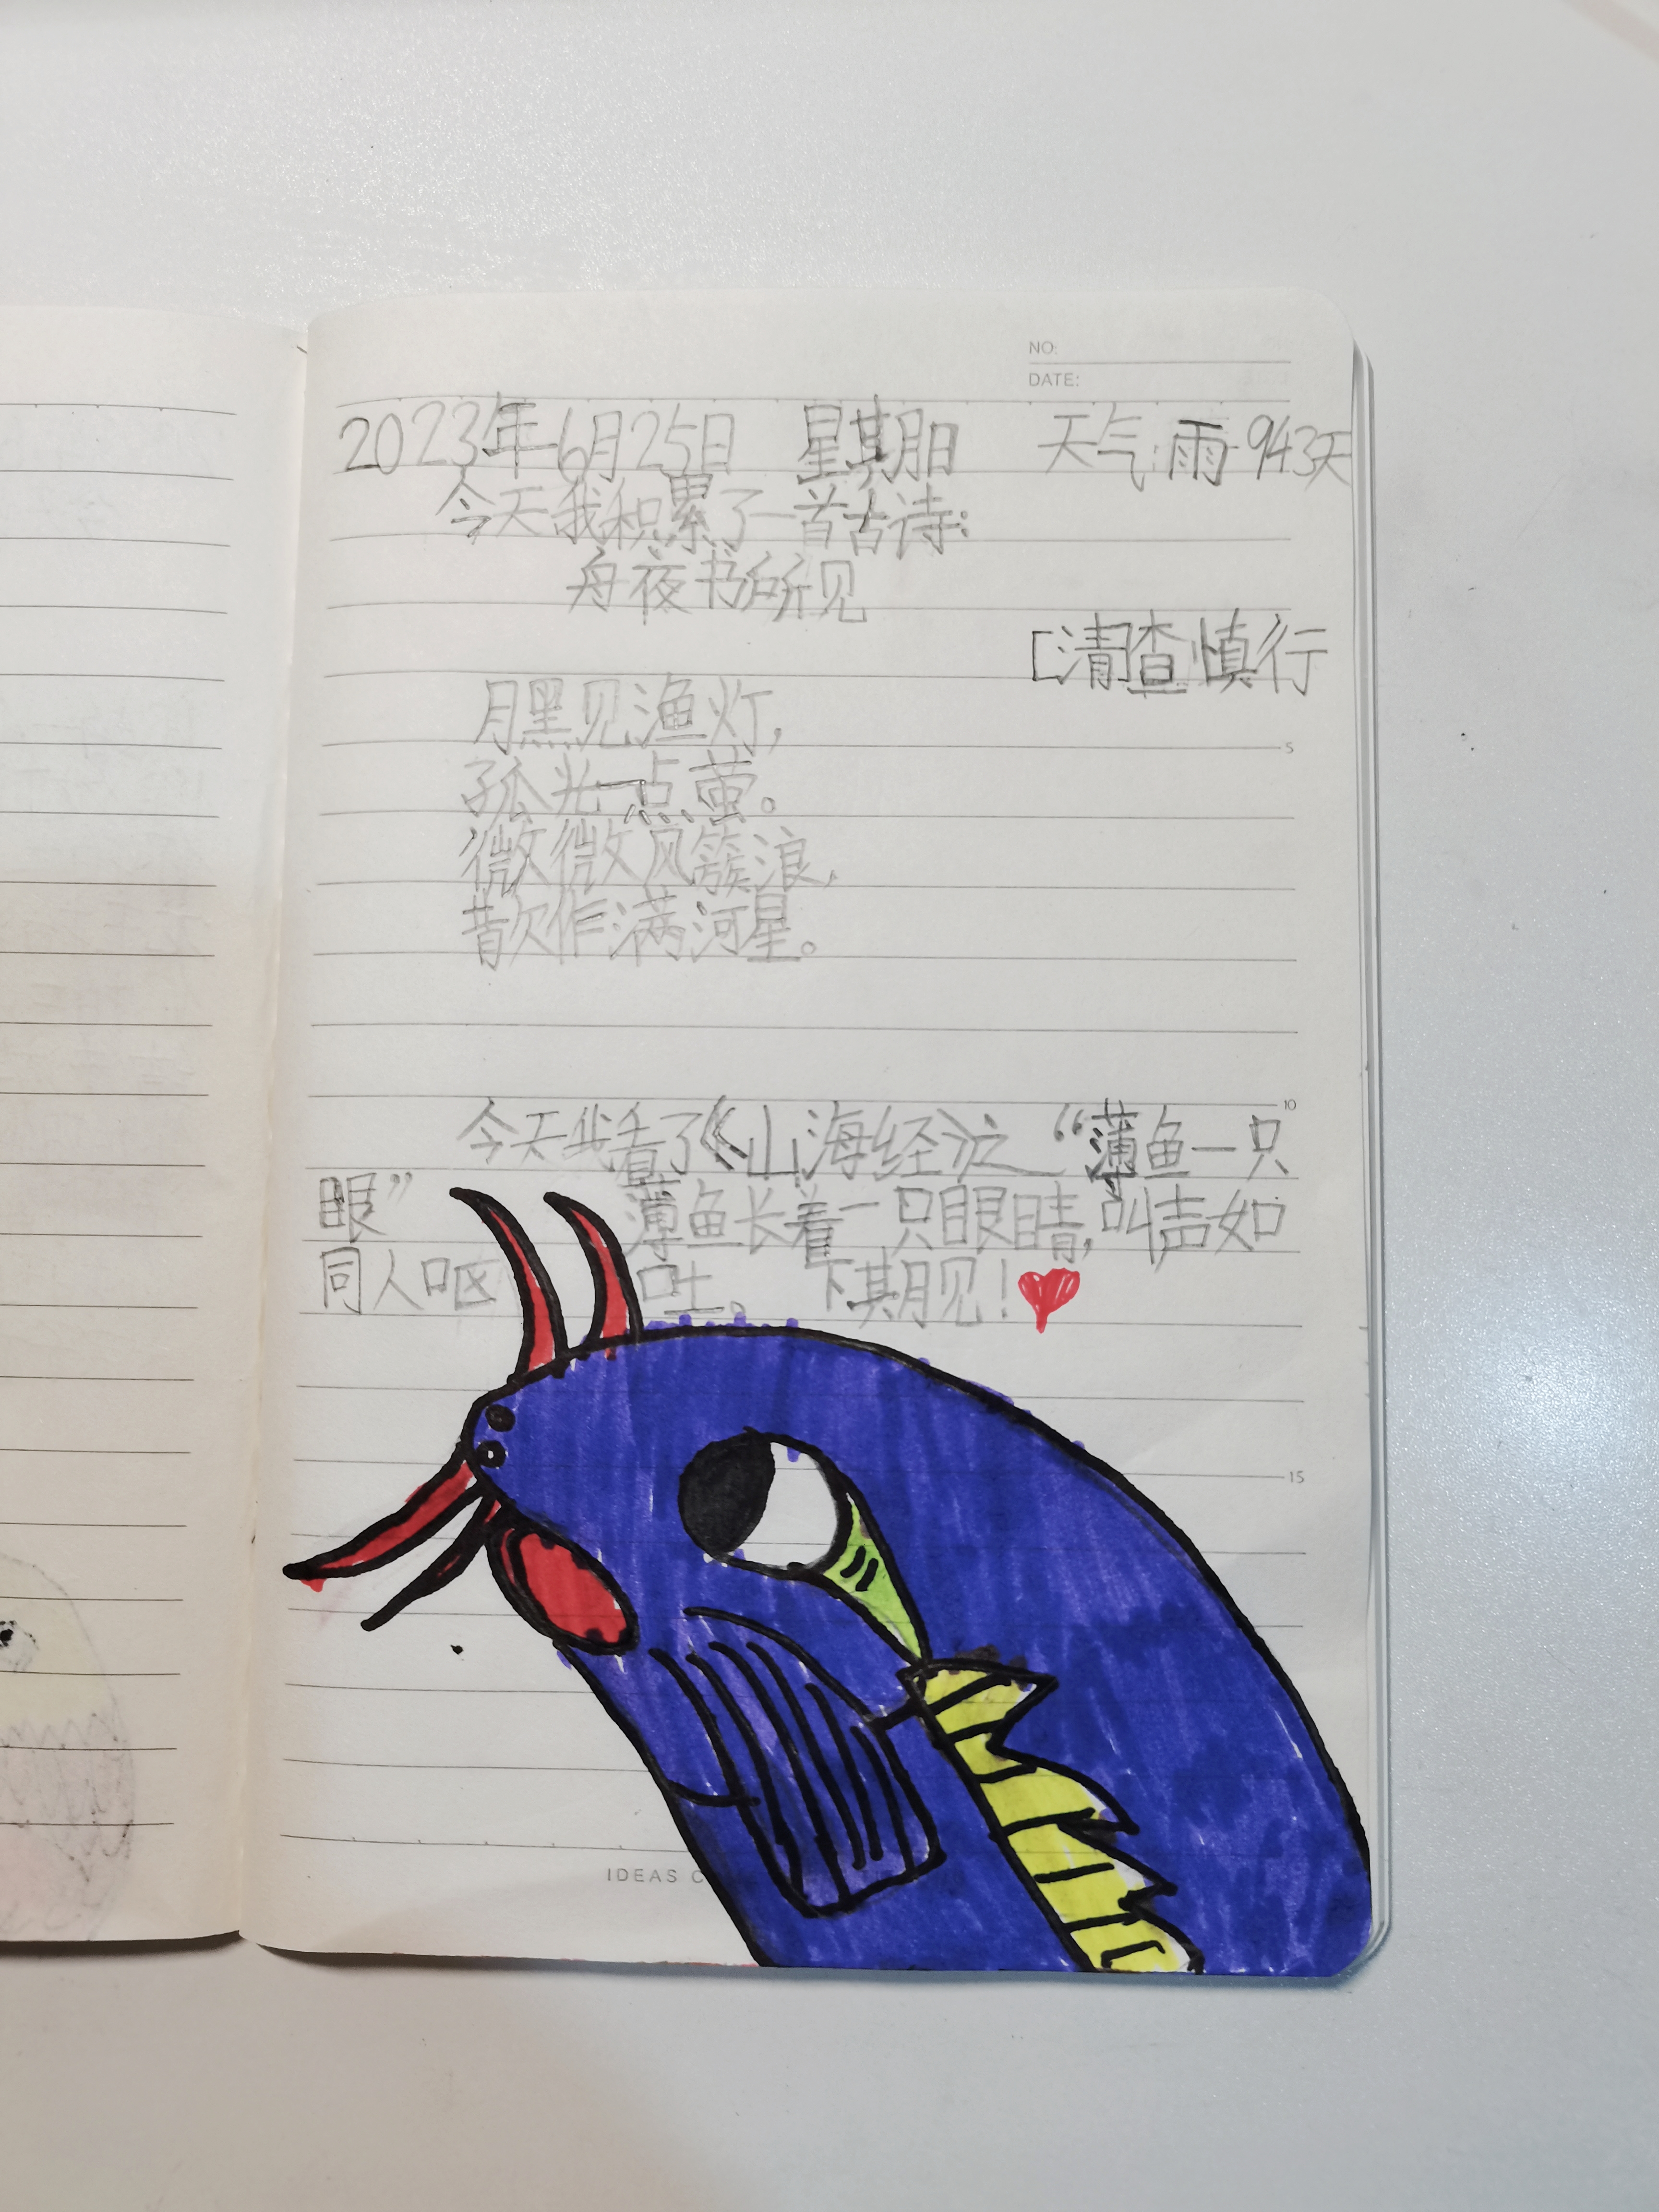 NO:
DATE:
2023年6月25日 星期日 天气:雨 943天
今天我积累了一首古诗:
舟夜书所见
[清]查慎行
月黑见渔灯,
5
孤光一点萤。
微微风簇浪,
散作满河星。
10
今天我看了《山海经》之“薄鱼一只
眼” 薄鱼长着一只眼睛,叫声如
同人呕吐。 下期见!
15
IDEAS